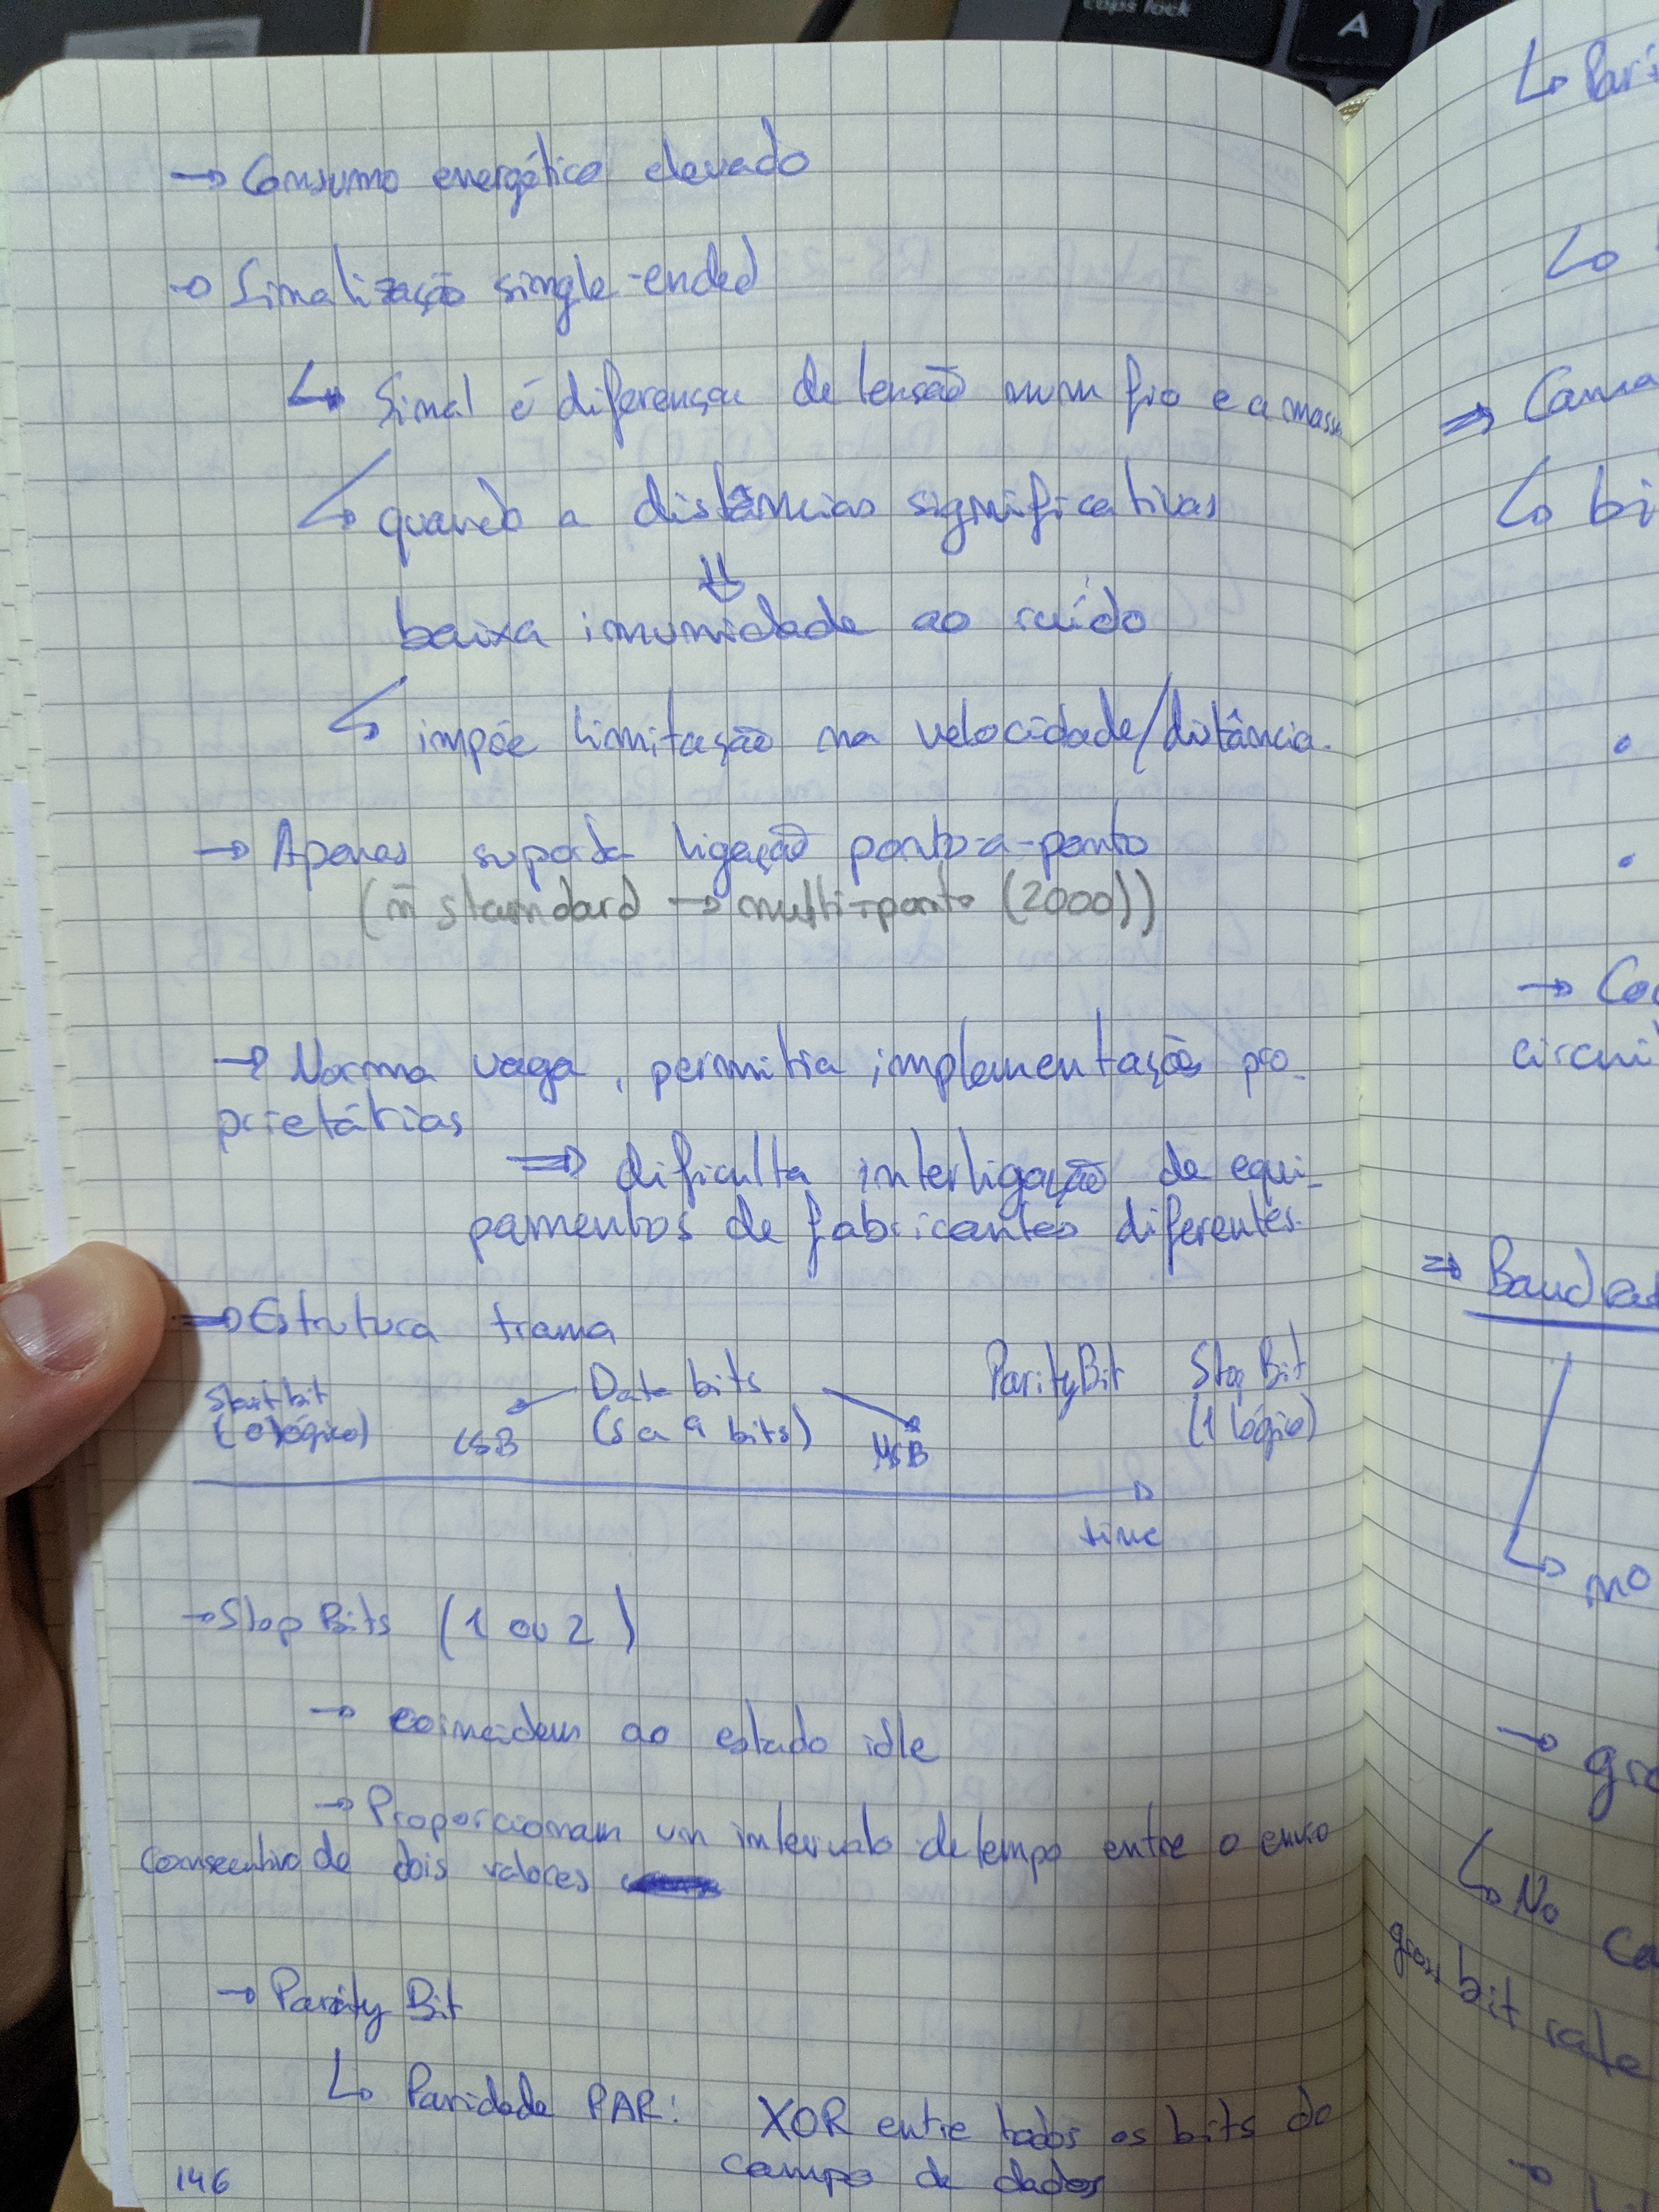 caps lock
A
→ Consumo energético elevado
→ Sinalização single-ended
↳ Sinal é diferença de tensão num fio e a massa
↳ quando a distâncias significativas
⇓
baixa imunidade ao ruído
↳ impõe limitação na velocidade/distância.
→ Apenas suporta ligação ponto-a-ponto
(ñ standard → multi-ponto (2000))
→ Norma vaga, permitia implementação pro-
prietárias
⇒ dificulta interligação de equi-
pamentos de fabricantes diferentes.
⇒ Estrutura trama
Start bit Data bits Parity Bit Stop Bit
(0 lógico) LSB (5 a 9 bits) MSB (1 lógico)
time
→ Stop Bits (1 ou 2)
→ coincidem ao estado idle
→ Proporcionam um intervalo de tempo entre o envio
consecutivo de dois valores
→ Parity Bit
↳ Paridade PAR: XOR entre todos os bits do
campo de dados
146
↳ Pari
↳
⇒ Cama
↳ bi
•
•
→ Co
circui
⇒ Baudra
↳ no
→ gro
↳ No ca
gross bit rate
→